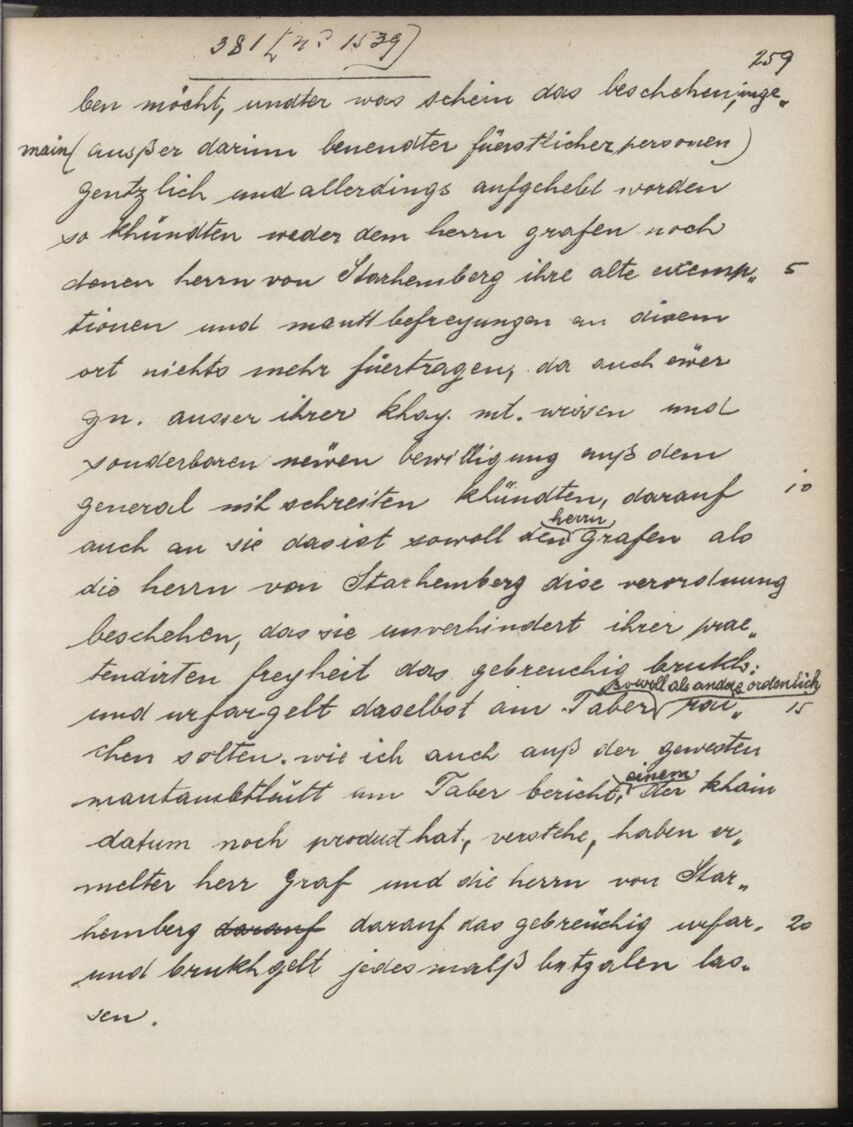 381 [n? 1539)
259
ben möcht, undter was schein das beschehen, inge„
main (außer darinn benendter füerstlicher personen)
gentzlich und allerdings aufgehebt worden
so khündten weder dem herrn grafen noch
denen herrn von Starhemberg ihre alte exemp„ 5
tionen und mautt befreyungen an disem
ort nichts mehr füertragen, da auch ewer
gn. ausser ihrer khay. mt. wissen und
sonderbaren newen bewilligung auß dem
general nit schreiten khündten, darauf 10
auch an sie das ist sowoll den herrn grafen als
die herrn von Starhemberg dise verordnung
beschehen, das sie unverhindert ihrer prae„
tendirten freyheit das gebreuchig brukh:
und urfargelt daselbst am Taber sowoll als andere ordenlich rai„ 15
chen solten. wie ich auch auß der gewesten
mautambtleütt am Taber bericht, einem der khain
datum noch product hat, verstehe, haben er„
melter herr Graf und die herrn von Star„
hemberg darauf darauf das gebreüchig urfar„ 20
und brukhgelt jedesmalß betzalen las„
sen.